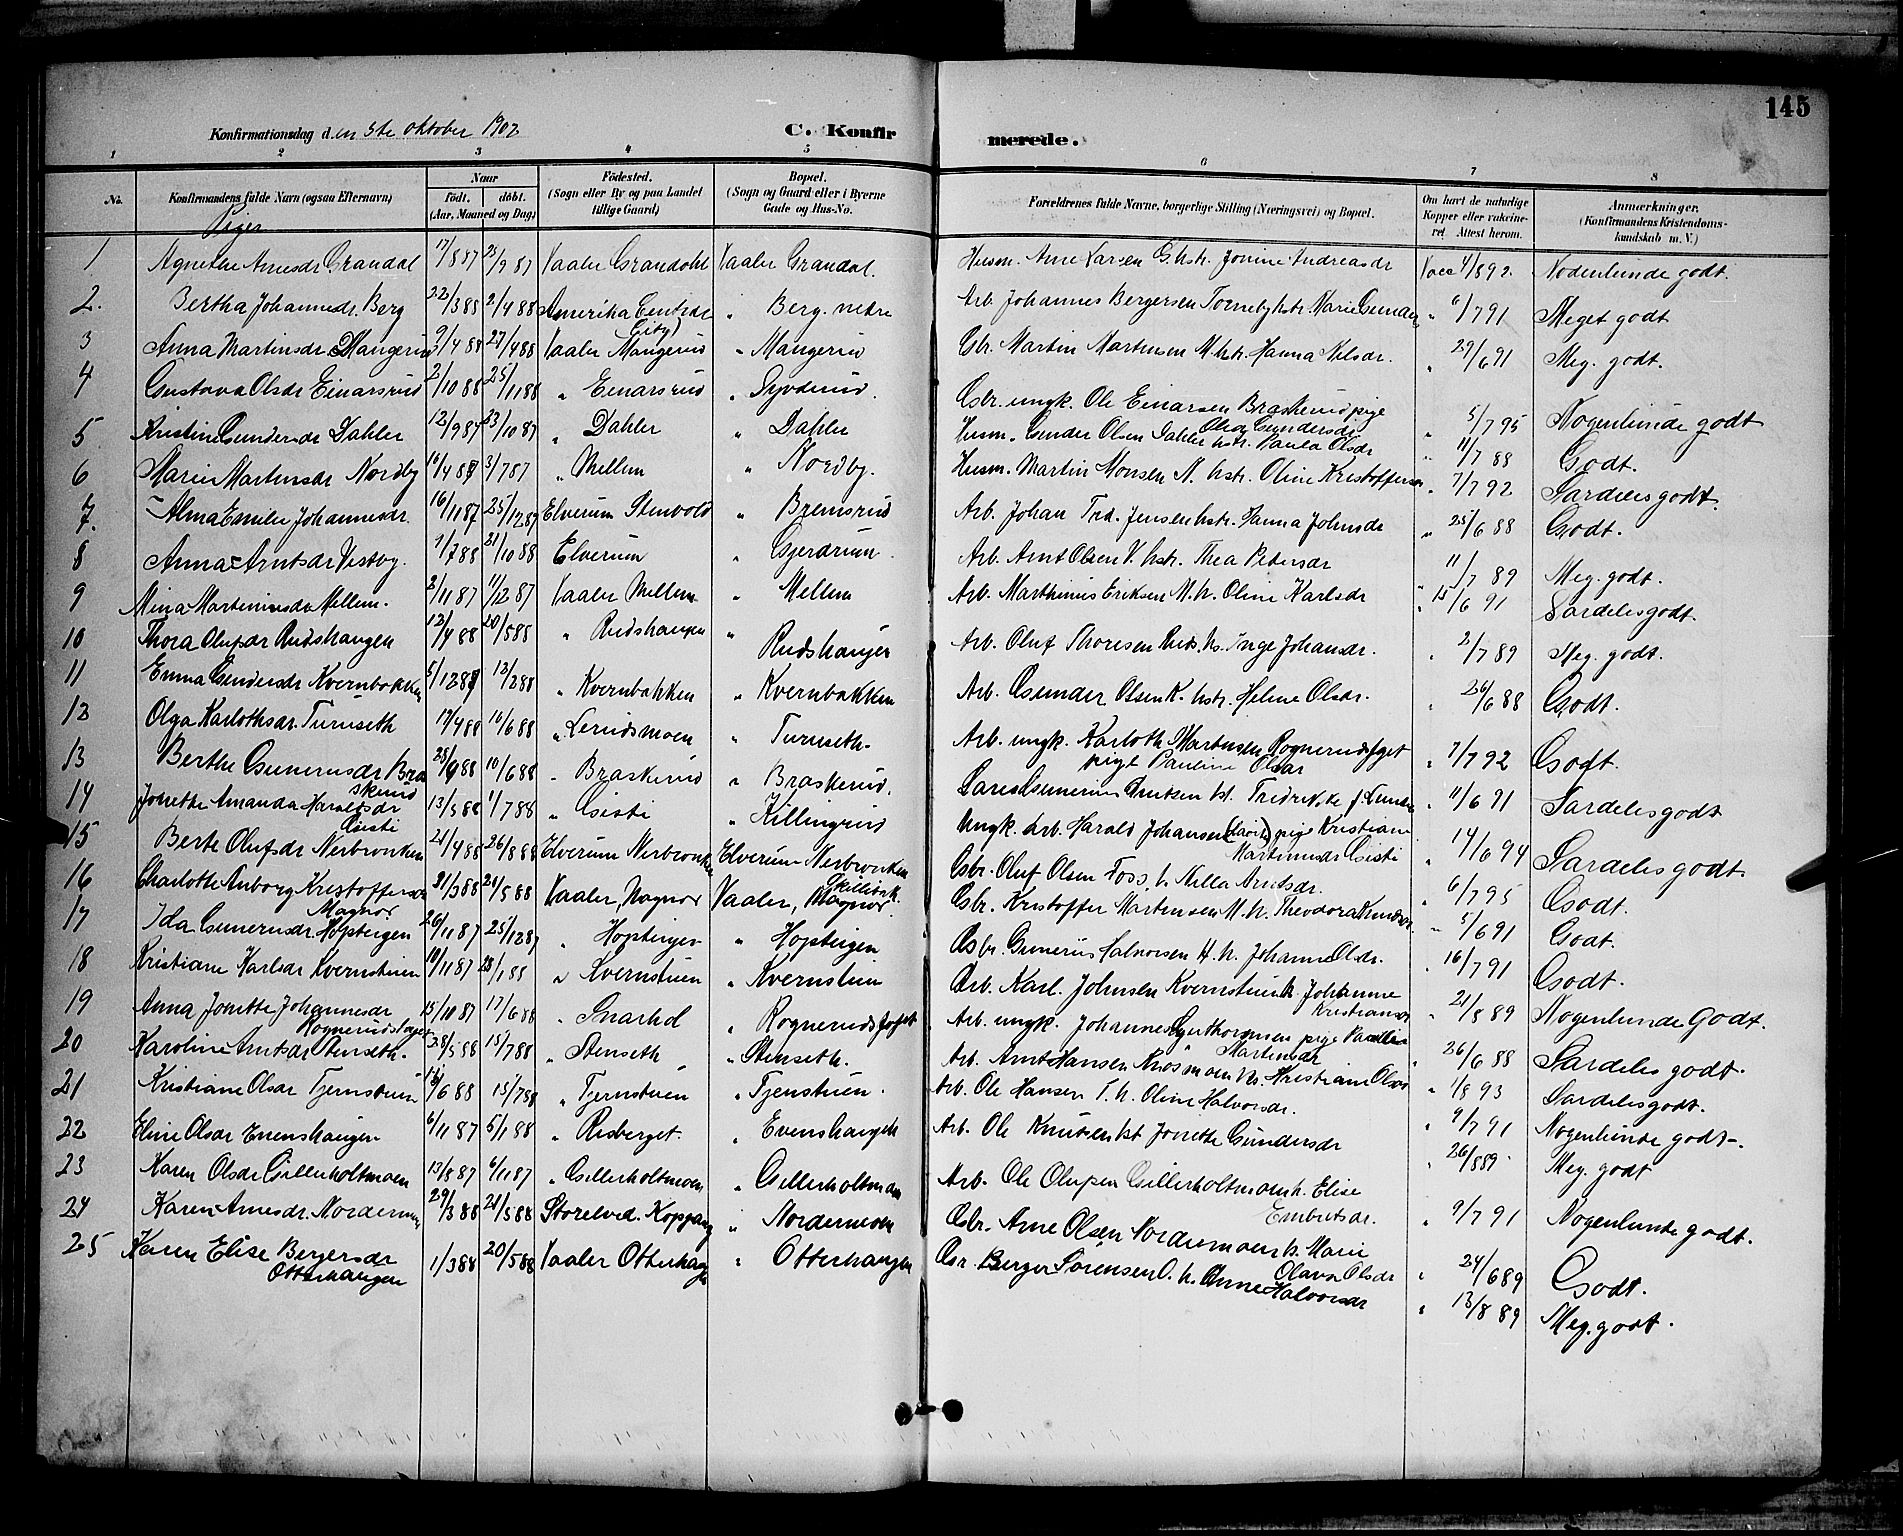 145
Konfirmationsdag den 5te Oktober 1902
C. Konfirmerede.
1 2 3 4 5 6 7 8
No.
Konfirmandens fulde Navn (ogsaa Efternavn)
Naar
födt. döbt.
(Aar, Maaned og Dag)
Födested.
(Sogn eller By og paa Landet
tillige Gaard)
Bopæl.
(Sogn og Gaard eller i Byerne
Gade og Hus-No.
Forældrenes fulde Navne, borgerlige Stilling (Næringsvei) og Bopæl.
Om havt de naturlige
Kopper eller vakcine-
ret Attest herom.
Anmærkninger.
(Konfirmandens Kristendoms-
kundskab m. V.)
Piger
1 Agnethe Arnesdr Grandal 17/8 87 25/9 87 Vaaler Grandahl Vaaler Grandal. Husm. Arne Larsen G. hstr. Jonine Andreasdr Vacc 4/8 92. Nodenlunde godt.
2. Bertha Johannesdr. Berg 22/3 88 2/4 88 Amerika Central " Berg. nedre Arb. Johannes Bergersen Torneby hstr. Marie " 6/7 91 Meget godt
City)
3 Anna Martinsdr Mangerud 9/4 88 27/4 88 Vaaler Mangerud " Mangerud Gbr. Martin Martinsen M. hstr. Hanna Nilsdr. " 29/6 91 Meg. godt.
4 Gustava Olsdr Einarsrud 2/10 88 25/11 88 " Einarsrud " Gbr. ungk. Ole Einarsen Braskerud pige " 5/7 95 Nogenlunde godt
Gundersdr
5 Kristine Gundersdr Dahler 12/9 87 23/10 87 " Dahler " Dahler Husm. Gunder Olsen Dahler hstr. Paula Olsdr " 11/7 88 Godt.
6 Marie Martinsdr Nordby 16/4 87 3/7 87 " Mellem " Nordby. Husm. Martin Monsen N. hstr. Oline Kristoffersdr " 7/7 92 Særdeles godt.
7. Alma Emilie Johannesdr. 16/11 87 25/12 87 Elverum Stenvold " Bremsrud Arb. Johan Frd. Jensen hstr. Hanna Johnsdr " 25/6 88 Godt.
8 Anna Arntsdr Vestby. 9/7 88 21/10 88 Elverum " Gjerdrum. Arb. Arnt Olsen V. hstr. Thea Pedersdr 11/7 89 Meg. godt.
9 Mina Martinusdr Mellem. 2/11 87 11/12 87 Vaaler Mellem " Mellem Arb. Marthinus Eriksen M. h. Oline Karlsdr " 15/6 91 Særdeles godt.
10 Thora Olufsdr Rudshaugen 12/4 88 20/5 88 " Rudshaugen " Rudshaugen Arb. Oluf Thoresen Ruds. hs. Inge Johansdr. " 2/7 89 Meg. godt.
11 Emma Gundersdr Kvernbakken 5/12 87 12/2 88 " Kvernbakken " Kvernbakken Arb. Gunder Olsen K. hstr. Helene Olsdr. " 26/6 88 Godt.
12 Olga Karlothsdr. Turuseth 17/4 88 16/6 88 " Lerudsmoen " Turuseth. Arb. ungk. Karloth Martinsen Rognerudsfjget " 7/7 92 Godt.
pige Pauline Olsdr
13 Berthe Gunerusdr Bra 28/4 88 10/6 88 " Braskerud " Braskerud. Gunerius Knutsen " 11/6 91 Særdeles godt
skerud
14 Jonette Amanda Haraldsdr 13/5 88 1/7 88 " Gisti " Killingrud Ungk. Arb. Harald Johansen pige Kristiane " 14/6 94 Særdeles godt.
Gisti
Martinusdr Gisti
15 Berte Olufsdr Nesbronken 21/4 88 26/8 88 Elverum Nesbronken Elverum Nesbronken Gbr. Oluf Olsen Foss, h. Nilla Arntsdr. " 6/7 95 Godt.
16 Charlotte Anborg Kristoffersdr 21/3 88 21/5 88 Vaaler, Magnor Vaaler, Magnor. Gbr. Kristoffer Martinsen M. h. Theodora Knudsdr " 5/6 91 Godt.
Magnor
17 Ida Gunerusdr Hopsteigen 26/11 87 25/12 87 " Hopsteigen " Hopsteigen Gbr. Gunerius Halvorsen H. h. Johanne Olsdr. " 16/7 91 Godt.
18 Kristiane Karlsdr Kvernstuen 10/11 87 28/1 88 " Kvernstuen " Kvernstuen Arb. Karl. Johnsen Kvernstuen h. Johanne " 21/8 89 Nogenlunde Godt.
Kristiansdr
19 Anna Jonette Johannesdr 15/10 87 17/6 88 " Snarhol " Rognerudsfjget Arb. ungk. Johannes pige " 26/6 88 Særdeles godt.
Martinsdr
20 Karoline Arntsdr Stenseth. 28/5 88 15/7 88 " Stenseth " Stenseth. Arb. Arnt Hansen hs. Kristiane Olsdr " 1/8 93 Særdeles godt.
21 Kristiane Olsdr Tjernstuen 6 88 15/7 88 " Tjernstuen " Tjenstuen. Arb. Ole Hansen T. h. Oline Halvorsdr. " 9/7 91 Nogenlunde godt.
22 Eline Olsdr Evenshaugen 6/11 87 5/1 88 " Risberget. " Evenshaugen Arb. Ole Knutsen hst Jonette Gundersdr " 26/8 89 Meg. godt
23 Karen Olsdr Gillerholtmoen 13/8 87 6/11 87 " Gillerholtmoen " Gillerholtmoen Arb. Ole Olufsen Gillerholtmoen h. Elise " 9/7 91 Nogenlunde godt.
Embretsdr.
24 Karen Arnesdr. Nordermoen 29/3 88 21/5 88 Storelved. Koppang " Nordermoen Gbr. Arne Olsen Nordermoen h. Marie " 24/6 89 Godt.
Olava Olsdr
25 Karen Elise Bergersdr 1/3 88 20/5 88 Vaaler Otterhaugen " Otterhaugen Gbr. Berger Sørensen O. h. Anne Halvorsdr " 13/8 89 Meg. godt.
Otterhaugen